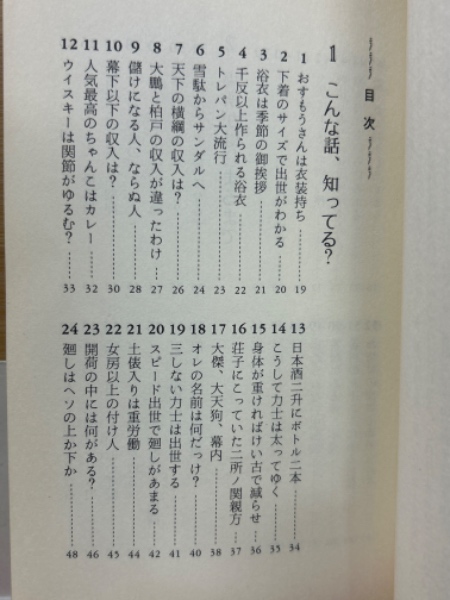 目次
1 こんな話、知ってる?
1 おすもうさんは衣装持ち……19
2 下着のサイズで出世がわかる……20
3 浴衣は季節の御挨拶……21
4 千反以上作られる浴衣……22
5 トレパン大流行……23
6 雪駄からサンダルへ……24
7 天下の横綱の収入は?……26
8 大鵬と柏戸の収入が違ったわけ……27
9 儲けになる人、ならぬ人……28
10 幕下以下の収入は?……30
11 人気最高のちゃんこはカレー……32
12 ウイスキーは関節がゆるむ?……33
13 日本酒二升にボトル二本……34
14 こうして力士は太ってゆく……35
15 身体が重ければけい古で減らせ……36
16 荘子にこっていた二所ノ関親方……37
17 大傑、大天狗、幕内……38
18 オレの名前は何だっけ?……40
19 三しない力士は出世する……41
20 スピード出世で廻しがあまる……42
21 土俵入りは重労働……44
22 女房以上の付け人……45
23 開荷の中には何がある?……46
24 廻しはヘソの上か下か……48